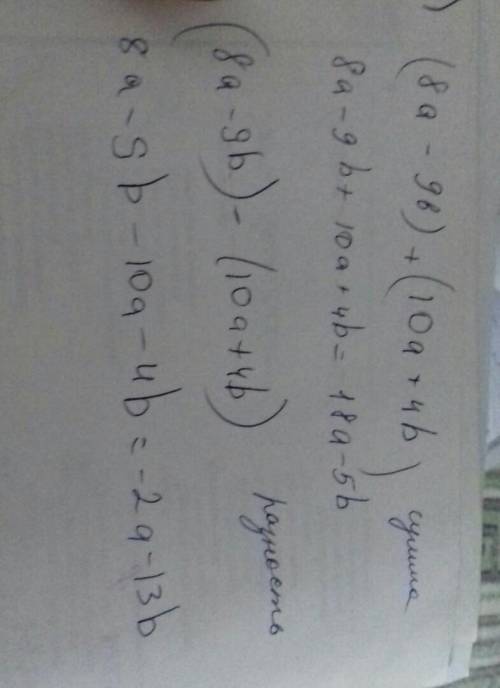 ) (8a - 9в) + (10a + 4b) сумма
8a - 9b + 10a + 4b = 18a - 5b
(8a - 9b) - (10a + 4b) разность
8a - 9b - 10a - 4b = -2a - 13b